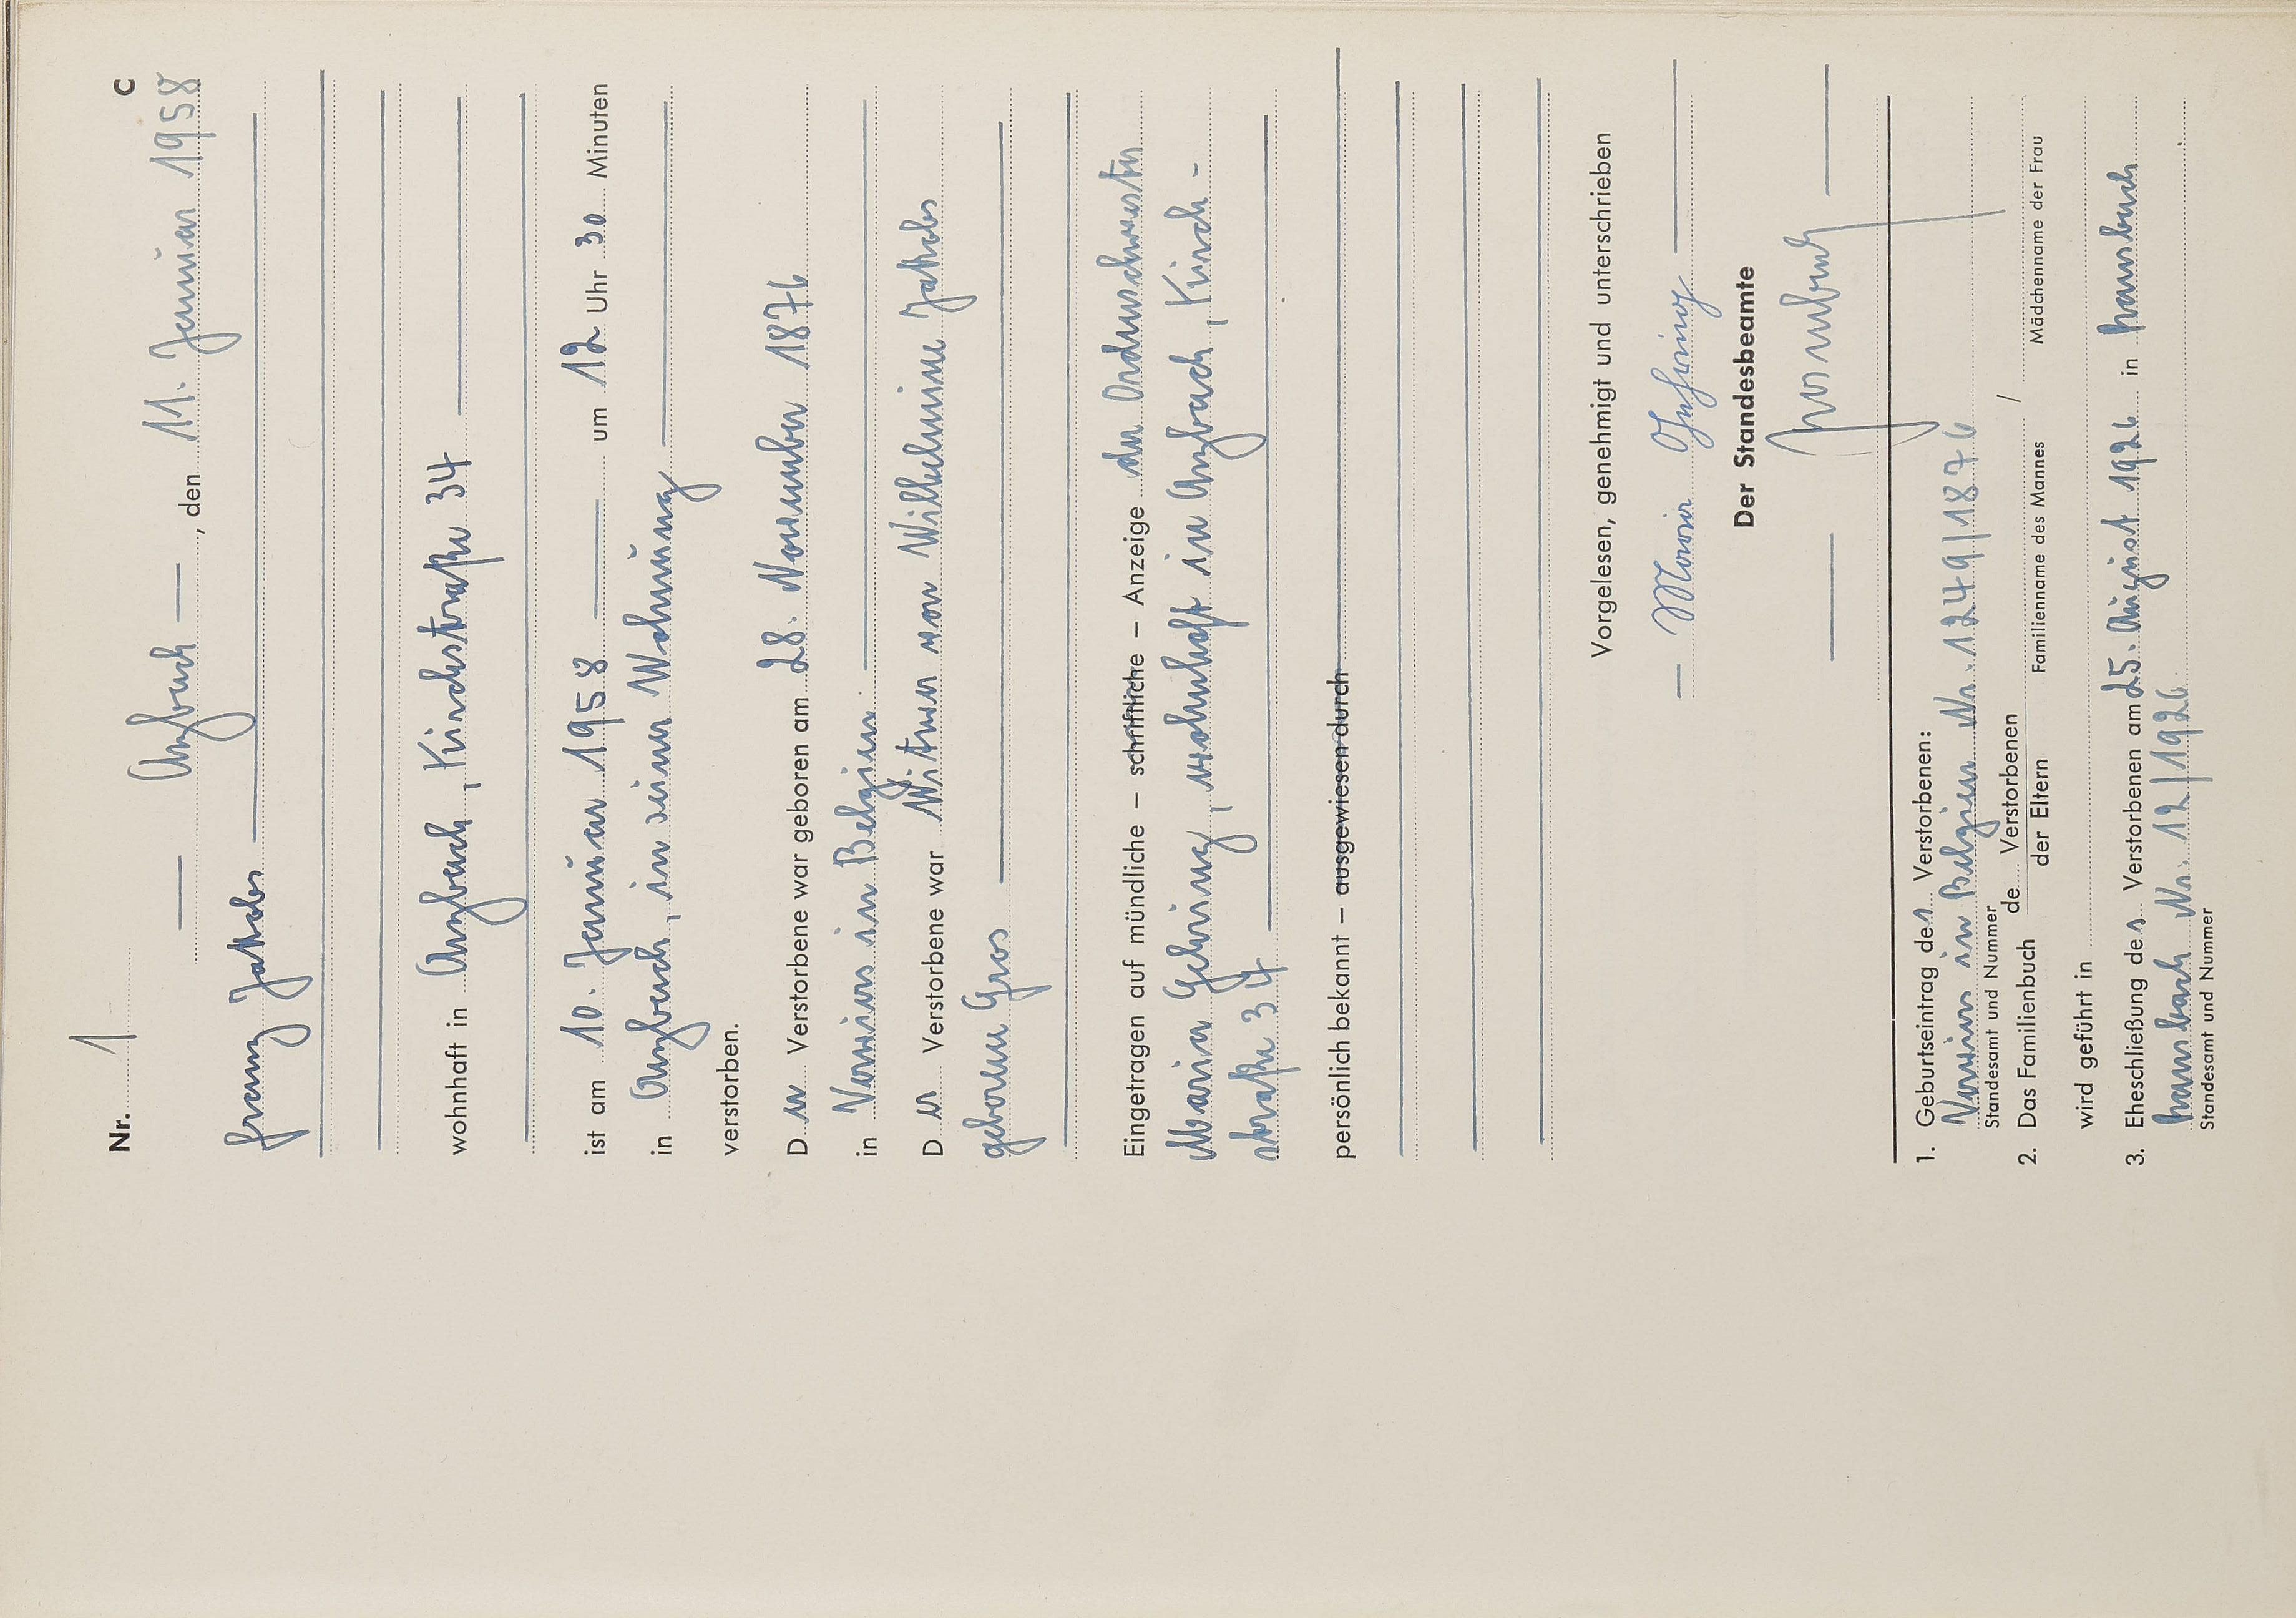 Nr. 1 C
Anzbach, den 11. Januar 1958
Franz Jakobs
wohnhaft in Anzbach, Kirchstraße 34
ist am 10. Januar 1958 um 12 Uhr 30 Minuten
in Anzbach, in seiner Wohnung
verstorben.
Der Verstorbene war geboren am 28. November 1876
in Verviers in Belgien.
Der Verstorbene war Witwer von Wilhelmine Jakobs
geborene Gros
Eingetragen auf mündliche – schriftliche – Anzeige der Ordensschwester
Maria Gehring, wohnhaft in Anzbach, Kirch-
straße 34
persönlich bekannt – ausgewiesen durch
Vorgelesen, genehmigt und unterschrieben
Maria Gehring
Der Standesbeamte
1. Geburtseintrag des Verstorbenen:
Verviers in Belgien Nr. 1249/1876
Standesamt und Nummer
2. Das Familienbuch de Verstorbenen der Eltern /
Familienname des Mannes Mädchenname der Frau
wird geführt in
3. Eheschließung des Verstorbenen am 25. August 1926 in Hausbach
Hausbach Nr. 12/1926
Standesamt und Nummer